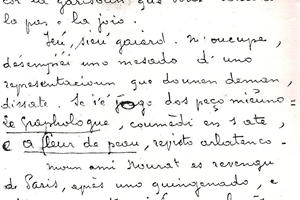 la pas e la joio.
Ieu, sieu gaiard. M'ocupe,
desempièi uno mesado d'uno
representacioun que dounen deman,
dissate. Se i'é jogo dos peço mièuno:
Le Graphologue, coumèdi en 1 ate,
e A fleur de peau, revisto arlatenco.
Moun ami Mourat es revengu
de Paris, après uno quingenado, e